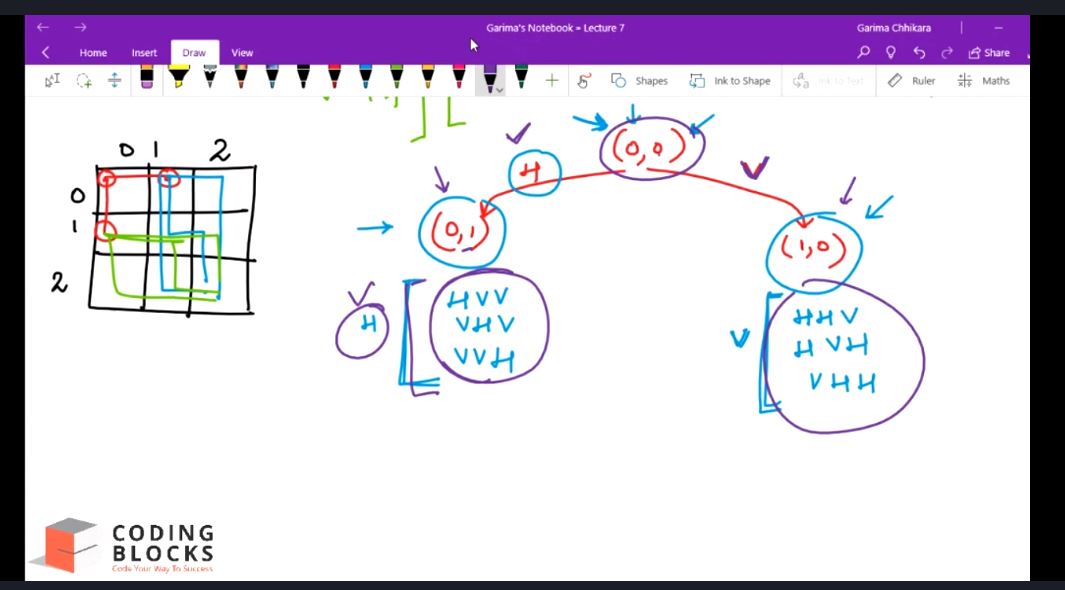 Garima's Notebook » Lecture 7
Garima Chhikara
Home Insert Draw View
Share
Shapes
Ink to Shape
Ink to Text
Ruler
Maths
0 1 2
0
1
2
(0,0)
H
V
(0,1)
(1,0)
H
HVV
VHV
VVH
V
HHV
HVH
VHH
CODING
BLOCKS
Code Your Way To Success